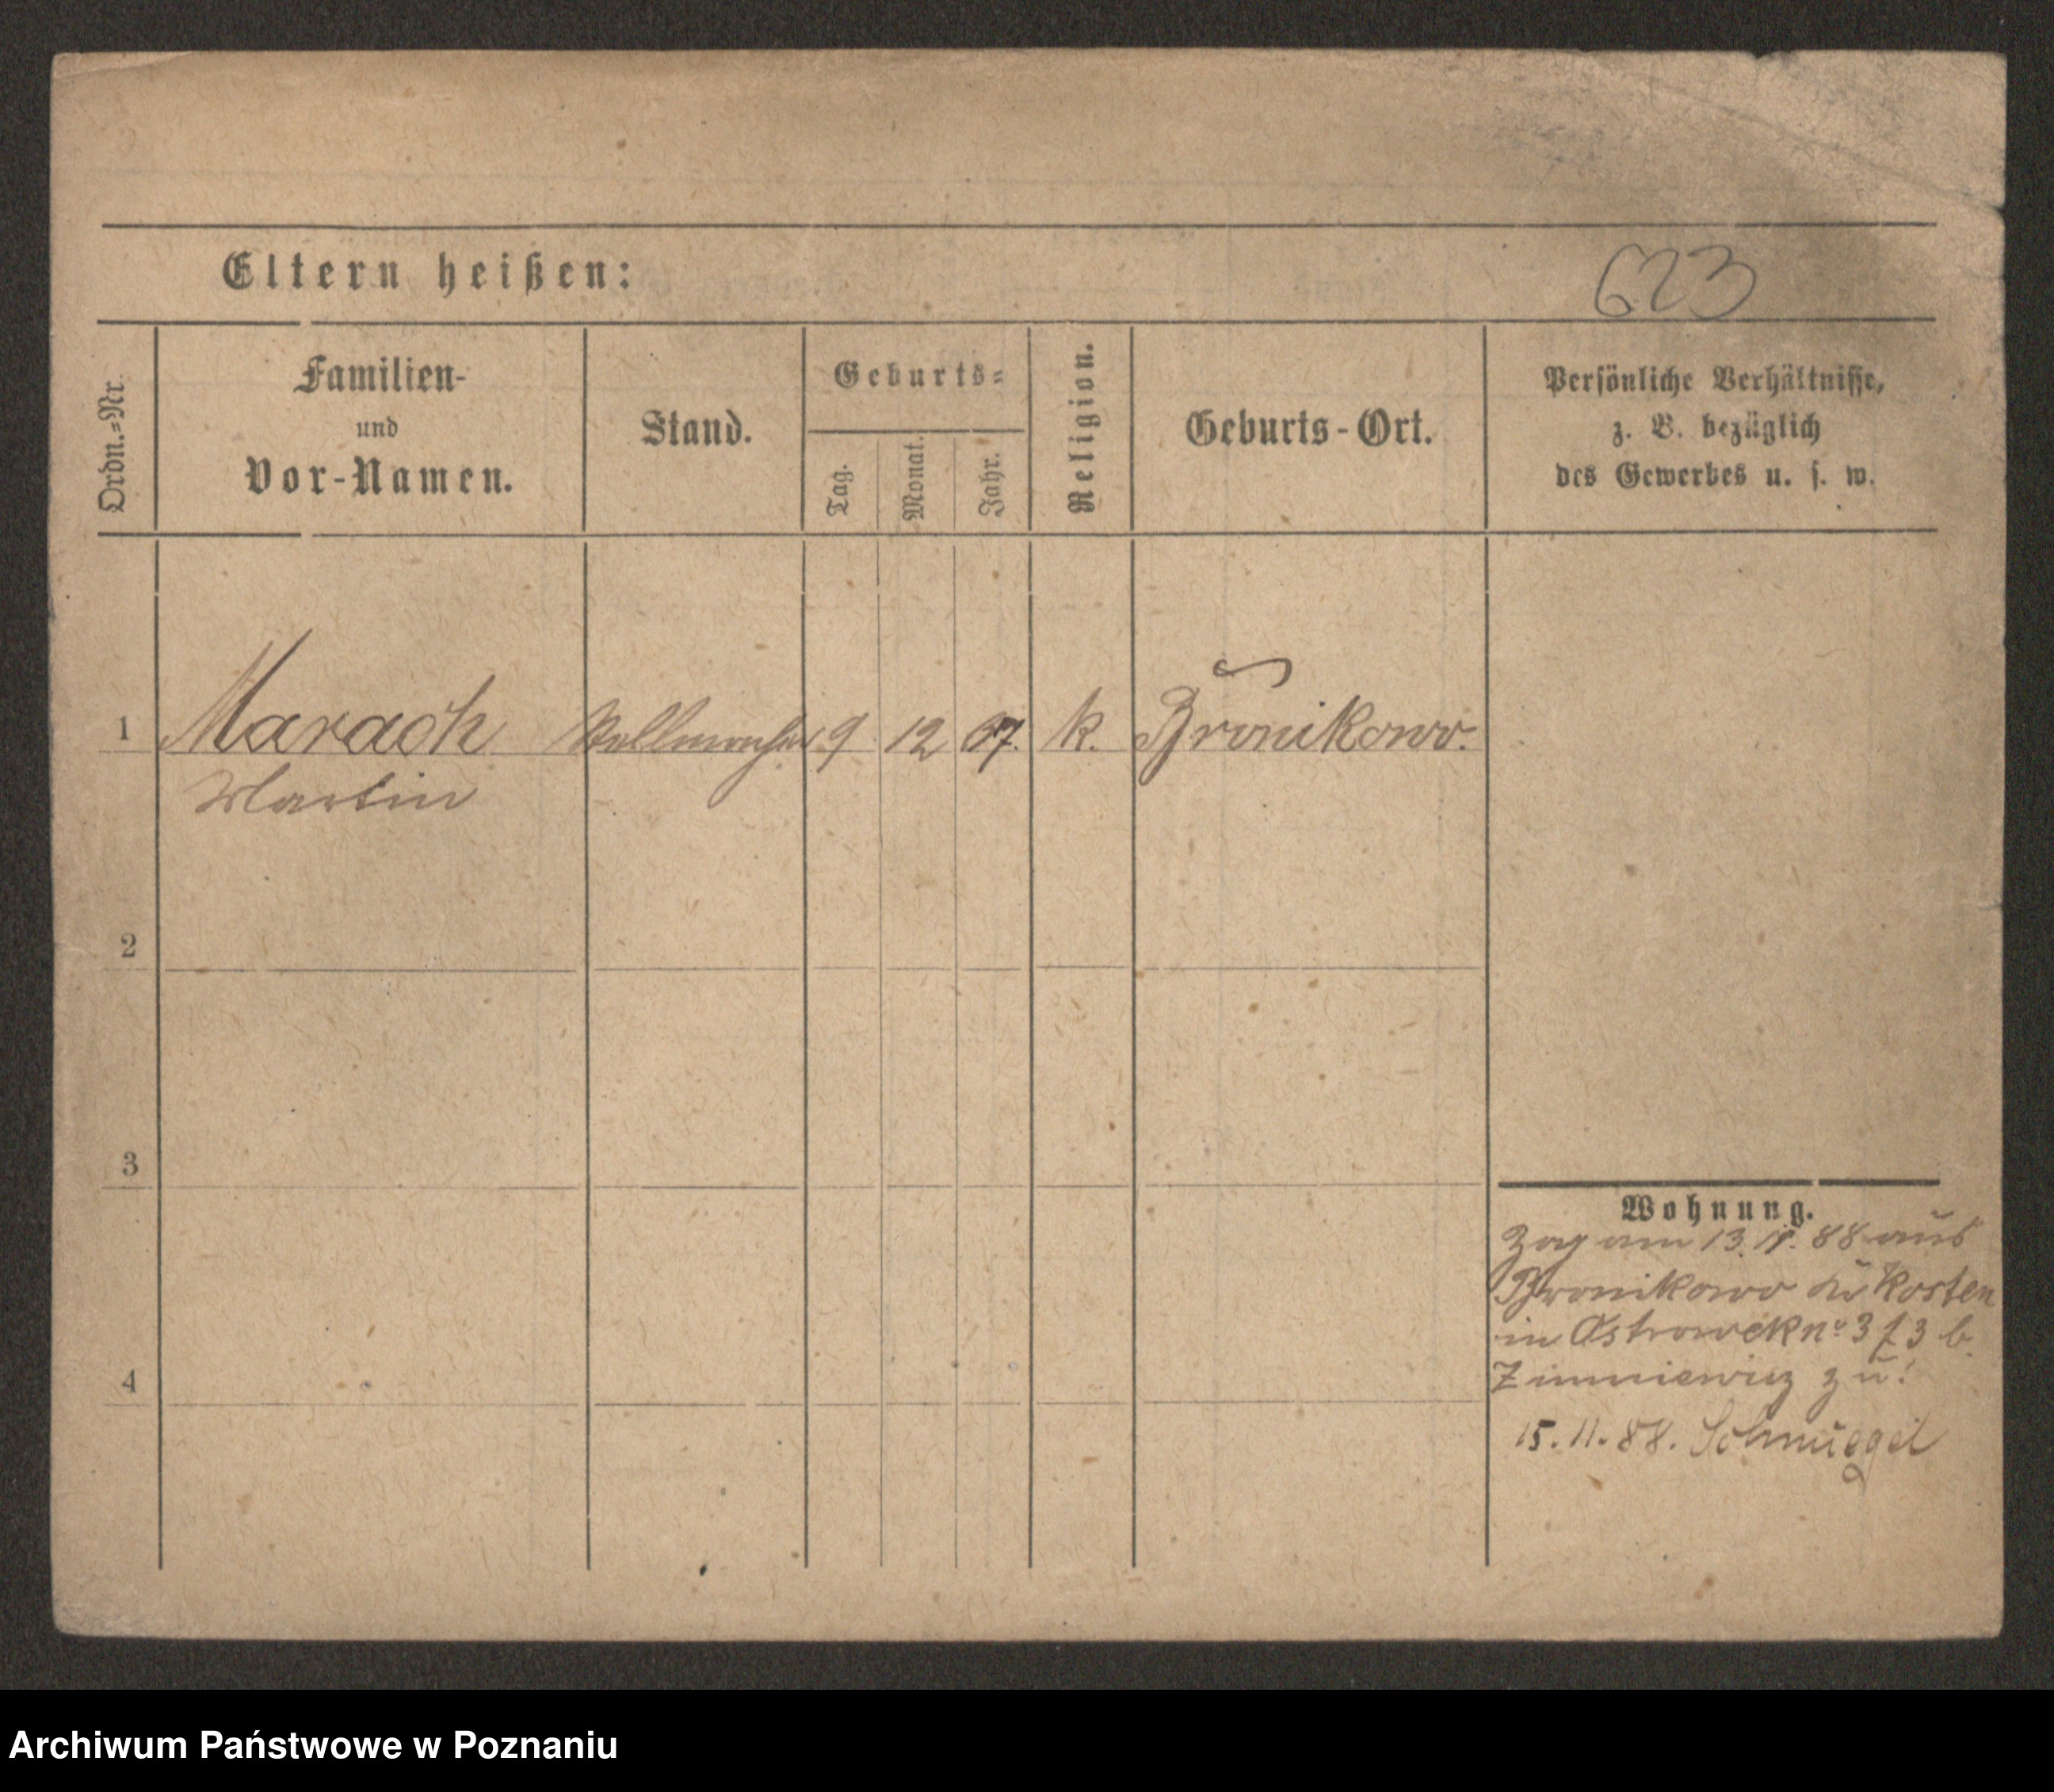 Eltern heißen:
623
Ordn.=Nr.
Familien-
und
Vor-Namen.
Stand.
Geburts=
Tag.
Monat.
Jahr.
Religion.
Geburts-Ort.
Persönliche Verhältnisse,
z. B. bezüglich
des Gewerbes u. s. w.
1 Marach 9 12 67. k. Bronikowo.
Martin
2
3
4
Wohnung.
Zog am 13. 11. 88 aus
Bronikowo Kr Kosten
in Ostrowek no 3 b.
Zimniewicz zu.
15. 11. 88. Schmiegel
Archiwum Państwowe w Poznaniu